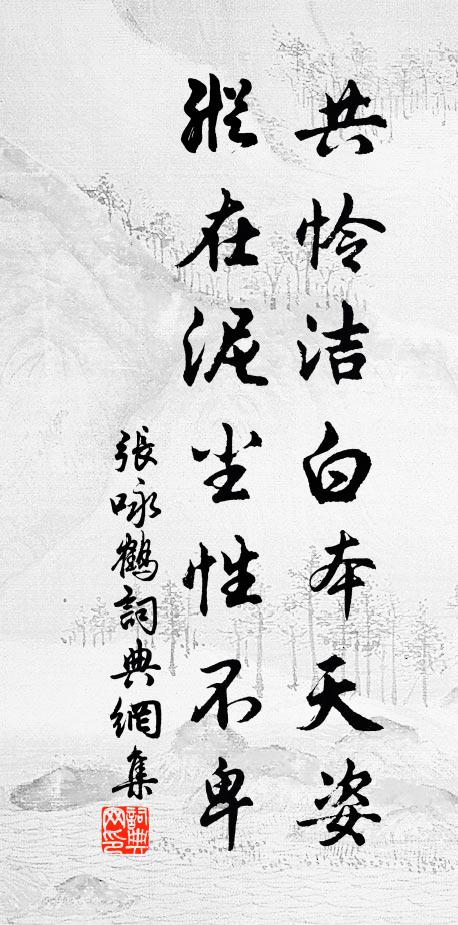 共怜洁白本天姿
纵在泥尘性不卑
張咏鶴詞典網集
詞典網印